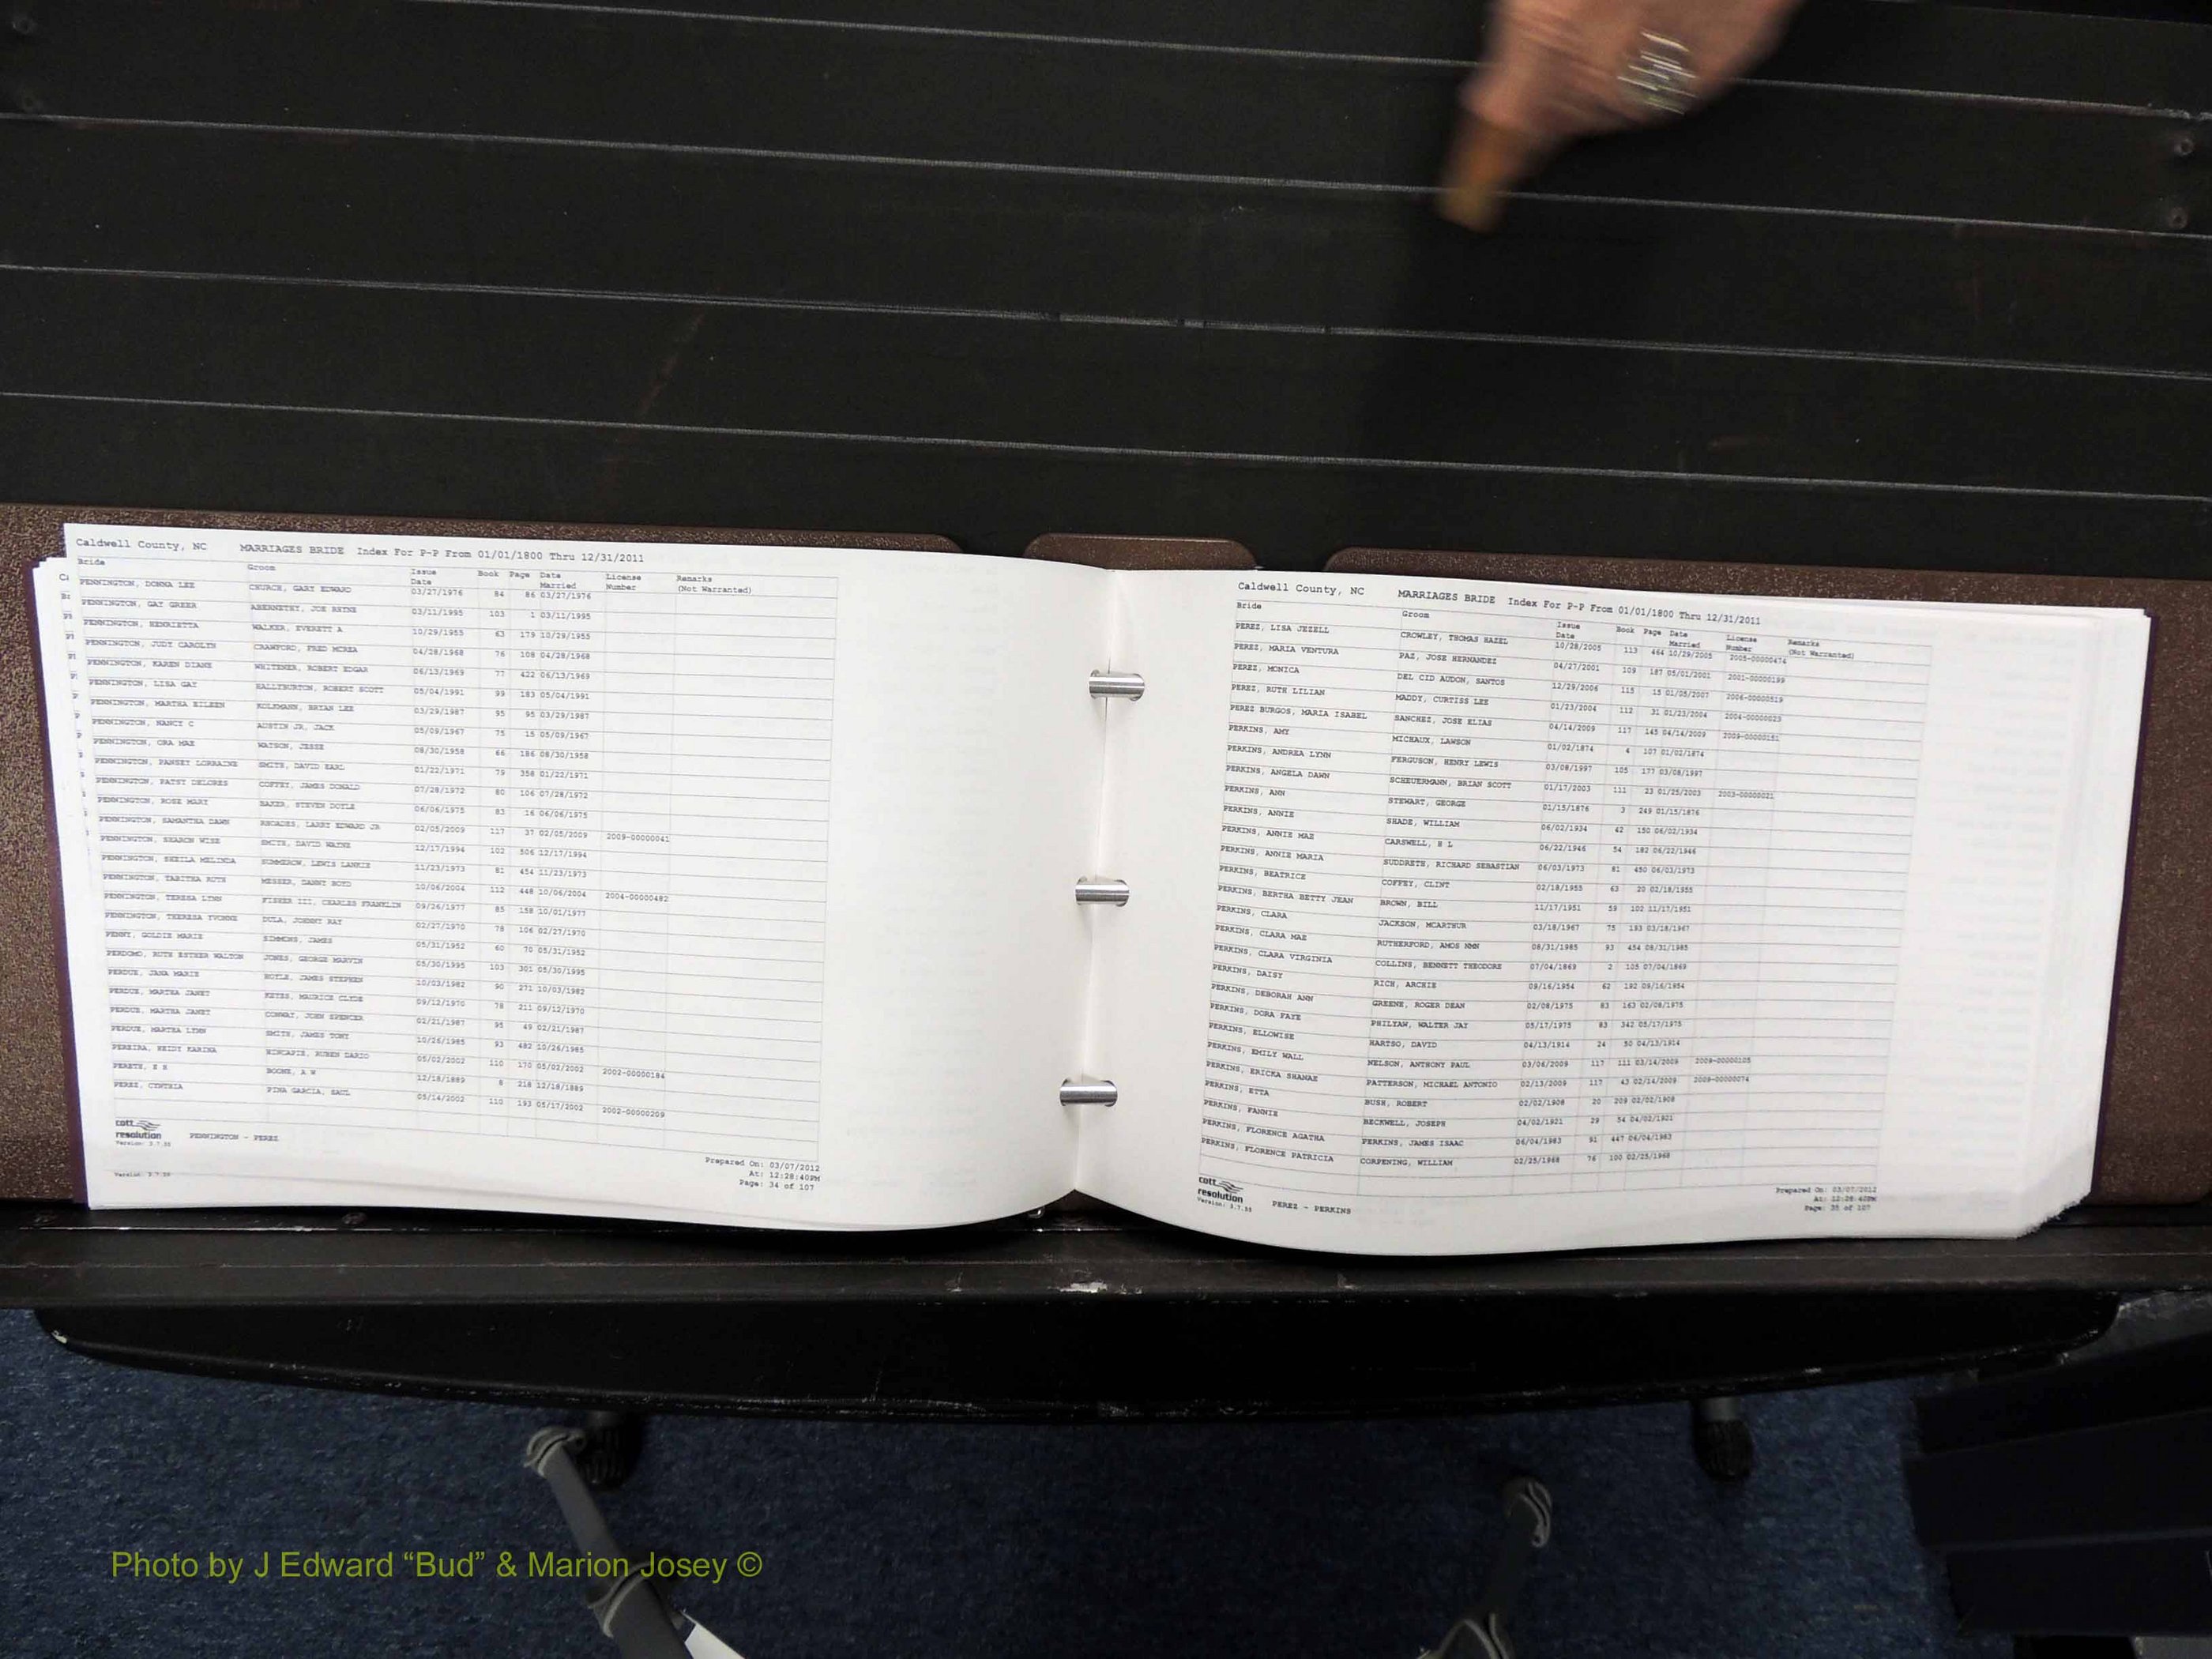 Caldwell County, NC MARRIAGES BRIDE Index For P-P From 01/01/1800 Thru 12/31/2011
Bride Groom Issue Date Book Page Date Married License Number Remarks (Not Warranted)
PENNINGTON, DONNA LEE CHURCH, GARY EDWARD 03/27/1976 84 86 03/27/1976
PENNINGTON, GAY GREER ABERNETHY, JOE RHYNE 03/11/1995 103 1 03/11/1995
PENNINGTON, HENRIETTA WALKER, EVERETT A 10/29/1955 63 179 10/29/1955
PENNINGTON, JUDY CAROLYN CRAWFORD, FRED MCREA 04/28/1968 76 108 04/28/1968
PENNINGTON, KAREN DIANE WHITENER, ROBERT EDGAR 06/13/1969 77 422 06/13/1969
PENNINGTON, LISA GAY HALLYBURTON, ROBERT SCOTT 05/04/1991 99 183 05/04/1991
PENNINGTON, MARTHA EILEEN BRYAN LEE 03/29/1987 95 95 03/29/1987
PENNINGTON, NANCY C AUSTIN JR, JACK 05/09/1967 75 15 05/09/1967
PENNINGTON, ORA MAE WATSON, JESSE 08/30/1958 66 186 08/30/1958
PENNINGTON, PANSEY LORRAINE SMITH, DAVID EARL 01/22/1971 79 358 01/22/1971
PENNINGTON, PATSY DELORES COFFEY, JAMES DONALD 07/28/1972 80 106 07/28/1972
PENNINGTON, ROSE MARY BAKER, STEVEN DOYLE 06/06/1975 83 16 06/06/1975
PENNINGTON, SAMANTHA DAWN RHOADES, LARRY EDWARD JR 02/05/2009 117 37 02/05/2009 2009-00000041
PENNINGTON, SHARON WISE SMITH, DAVID WAYNE 12/17/1994 102 506 12/17/1994
PENNINGTON, SHEILA MELINDA SUMMEROW, LEWIS LANKIE 11/23/1973 81 454 11/23/1973
PENNINGTON, TABITHA RUTH MESSER, DANNY BOYD 10/06/2004 112 448 10/06/2004 2004-00000482
PENNINGTON, TERESA LYNN FISHER III, CHARLES FRANKLIN 09/26/1977 85 158 10/01/1977
PENNINGTON, THERESA YVONNE DULA, JOHNNY RAY 02/27/1970 78 106 02/27/1970
PENNY, GOLDIE MARIE SIMMONS, JAMES 05/31/1952 60 70 05/31/1952
PERDOMO, RUTH ESTHER WALTON JONES, GEORGE MARVIN 05/30/1995 103 301 05/30/1995
PERDUE, JANA MARIE HOYLE, JAMES STEPHEN 10/03/1982 90 271 10/03/1982
PERDUE, MARTHA JANET KEYES, MAURICE CLYDE 09/12/1970 78 211 09/12/1970
PERDUE, MARTHA JANET CONWAY, JOHN SPENCER 02/21/1987 95 49 02/21/1987
PERDUE, MARTHA LYNN SMITH, JAMES TONY 10/26/1985 93 482 10/26/1985
PEREIRA, HEIDY KARINA HINCAPIE, RUBEN DARIO 05/02/2002 110 170 05/02/2002 2002-00000184
PERETE, E H BOONE, A W 12/18/1889 8 218 12/18/1889
PEREZ, CYNTHIA PINA GARCIA, SAUL 05/14/2002 110 193 05/17/2002 2002-00000209
cott
resolution PENNINGTON - PEREZ
Version: 3.7.55
Prepared On: 03/07/2012
At: 12:28:40PM
Page: 34 of 107
Caldwell County, NC MARRIAGES BRIDE Index For P-P From 01/01/1800 Thru 12/31/2011
Bride Groom Issue Date Book Page Date Married License Number Remarks (Not Warranted)
PEREZ, LISA JEZELL CROWLEY, THOMAS HAZEL 10/28/2005 113 464 10/29/2005 2005-00000474
PEREZ, MARIA VENTURA PAZ, JOSE HERNANDEZ 04/27/2001 109 187 05/01/2001 2001-00000199
PEREZ, MONICA DEL CID AUDON, SANTOS 12/29/2006 115 15 01/05/2007 2006-00000519
PEREZ, RUTH LILIAN MADDY, CURTISS LEE 01/23/2004 112 31 01/23/2004 2004-00000023
PEREZ BURGOS, MARIA ISABEL SANCHEZ, JOSE ELIAS 04/14/2009 117 145 04/14/2009 2009-00000151
PERKINS, AMY MICHAUX, LAWSON 01/02/1874 4 107 01/02/1874
PERKINS, ANDREA LYNN FERGUSON, HENRY LEWIS 03/08/1997 105 177 03/08/1997
PERKINS, ANGELA DAWN SCHEUERMANN, BRIAN SCOTT 01/17/2003 111 23 01/25/2003 2003-00000021
PERKINS, ANN STEWART, GEORGE 01/15/1876 3 249 01/15/1876
PERKINS, ANNIE SHADE, WILLIAM 06/02/1934 42 150 06/02/1934
PERKINS, ANNIE MAE CARSWELL, H L 06/22/1946 54 182 06/22/1946
PERKINS, ANNIE MARIA SUDDRETH, RICHARD SEBASTIAN 06/03/1973 81 450 06/03/1973
PERKINS, BEATRICE COFFEY, CLINT 02/18/1955 63 20 02/18/1955
PERKINS, BERTHA BETTY JEAN BROWN, BILL 11/17/1951 59 102 11/17/1951
PERKINS, CLARA JACKSON, MCARTHUR 03/18/1967 75 193 03/18/1967
PERKINS, CLARA MAE RUTHERFORD, AMOS NMN 08/31/1985 93 454 08/31/1985
PERKINS, CLARA VIRGINIA COLLINS, BENNETT THEODORE 07/04/1869 2 105 07/04/1869
PERKINS, DAISY RICH, ARCHIE 09/16/1954 62 192 09/16/1954
PERKINS, DEBORAH ANN GREENE, ROGER DEAN 02/08/1975 83 163 02/08/1975
PERKINS, DORA FAYE PHILYAW, WALTER JAY 05/17/1975 83 342 05/17/1975
PERKINS, ELLOWISE HARTSO, DAVID 04/13/1914 24 50 04/13/1914
PERKINS, EMILY WALL NELSON, ANTHONY PAUL 03/06/2009 117 111 03/14/2009 2009-00000105
PERKINS, ERICKA SHANAE PATTERSON, MICHAEL ANTONIO 02/13/2009 117 43 02/14/2009 2009-00000074
PERKINS, ETTA BUSH, ROBERT 02/02/1908 20 209 02/02/1908
PERKINS, FANNIE BECKWELL, JOSEPH 04/02/1921 29 54 04/02/1921
PERKINS, FLORENCE AGATHA PERKINS, JAMES ISAAC 06/04/1983 91 447 06/04/1983
PERKINS, FLORENCE PATRICIA CORPENING, WILLIAM 02/25/1968 76 100 02/25/1968
cott
resolution PEREZ - PERKINS
Version: 3.7.55
Prepared On: 03/07/2012
At: 12:28:40PM
Page: 35 of 107
Photo by J Edward “Bud” & Marion Josey ©